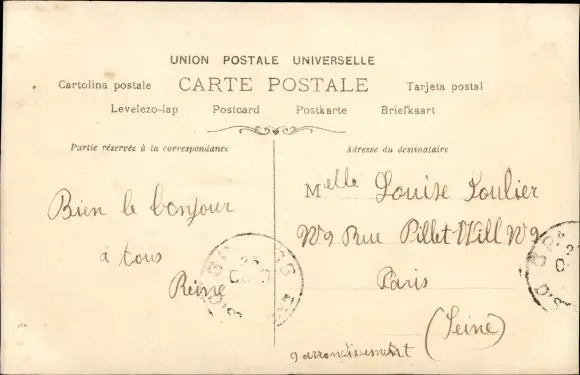 UNION POSTALE UNIVERSELLE
Cartolina postale CARTE POSTALE Tarjeta postal
Levelezo-lap Postcard Postkarte Briefkaart
Partie réservée à la correspondance
Adresse du destinataire
Bien le bonjour
à tous
Reine
Melle Louise Loulier
N9 Rue Pillet-Will N9
Paris
(Seine)
9 arrondissement